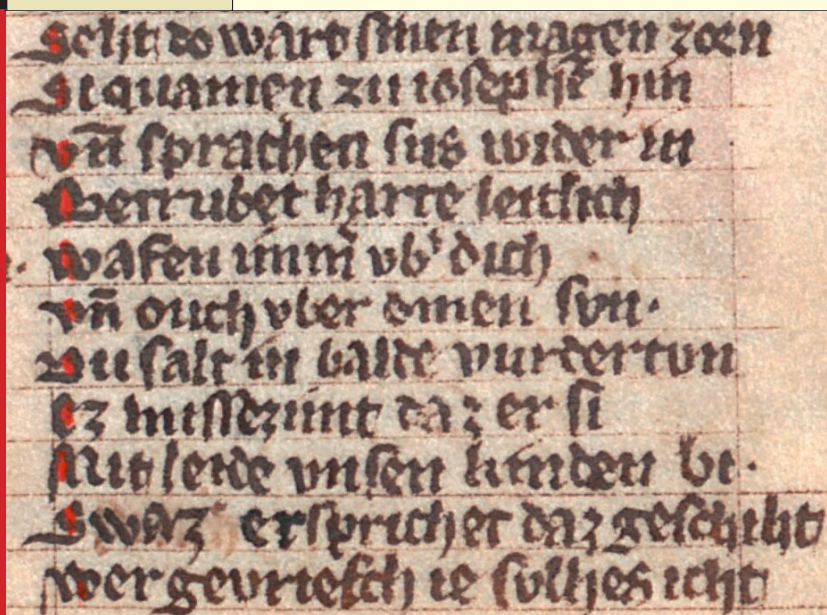 Seht do wart sinen magen zorn
Si quamen zu iosephē hin
vn̄ sprachen sus wider in
Betrubet harte leitlich
wafen im̄m̄ vb' dich
vn̄ ouch vber dinen svn·
Du salt in balde vurder tvn
Ez missezimt daz er si
Mit leide vnsen kinden bi·
Swaz er sprichet daz geschiht
wer gevriesch ie sulhes icht